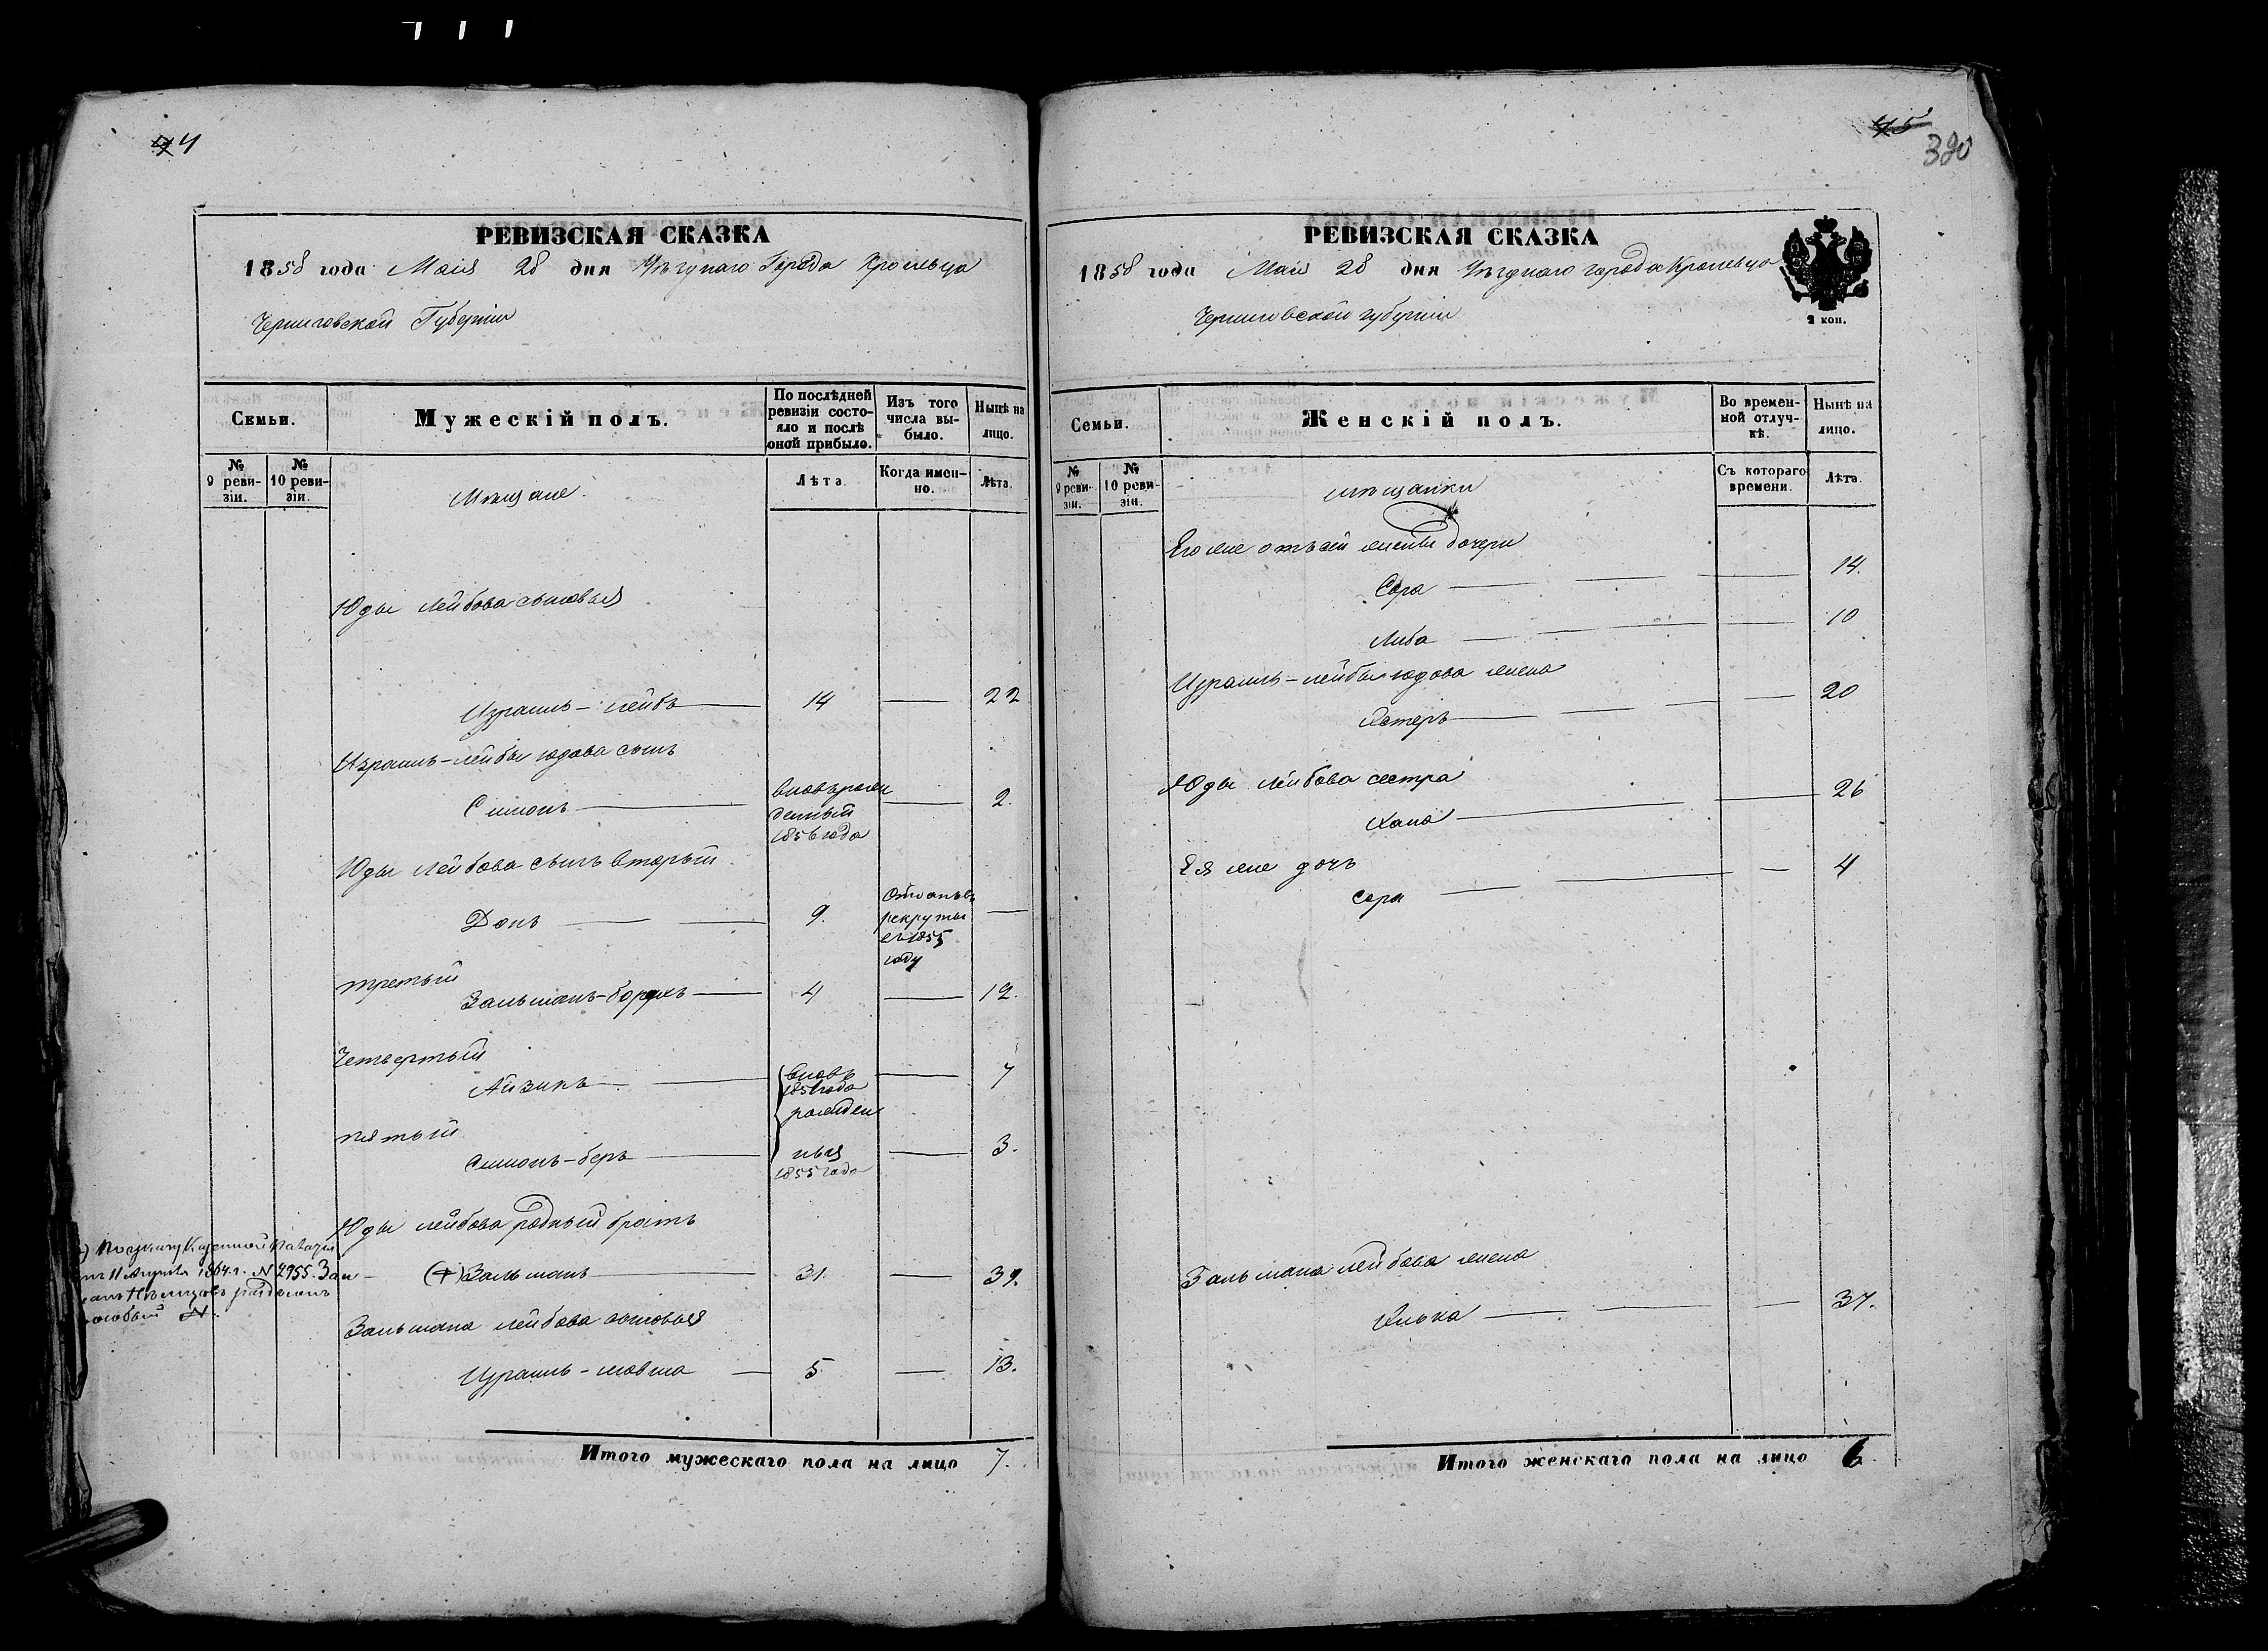 44
РЕВИЗСКАЯ СКАЗКА
1858 года Маія 28 дня Уѣзднаго Города Кролевца
Черниговской Губерніи
Семьи.
Мужескій полъ.
По послѣдней ревизіи состо-
яло и послѣ
оной прибыло.
Изъ того
числа вы-
было.
Нынѣ на
лицо.
№
9 реви-
зіи.
№
10 реви-
зіи.
Мѣщане.
Лѣта
Когда имен-
но.
Лѣта.
Юды Лейбова сыновья
Израиль-Лейбъ 14 22
Израиль-Лейбы Юдова сынъ
Симонъ 2.
вновьрож
денный
1856 года
Юды Лейбова сынъ вторый
Донъ 9.
Отданъ въ
рекруты
въ 1855
году
третый
Зальманъ-борухъ 4 12.
Четвертый
Айзикъ 7
вновь
1851 года
рожден
пятый
Симонъ-беръ 3.
ныя
1855 года
Юды Лейбова родный братъ
(+) Зальманъ 31. 39.
По указу Казенной Палаты
11 Августа 1864 г. № 7955. Зал-
особый №.
Зальмана Лейбова сыновья
Израиль-мовша 5 13.
Итого мужескаго пола на лицо 7.
45
380
РЕВИЗСКАЯ СКАЗКА
1858 года Маія 28 дня Уѣзднаго города Кролевца
Черниговской губерніи
2 коп.
Семьи.
Женскій полъ.
Во времен-
ной отлуч-
кѣ.
Нынѣ на
лицо.
№
9 реви-
зіи.
№
10 реви-
зіи.
мѣщанки
Съ котораго
времени.
Лѣта.
Его же отъ сей жены дочери
Сора 14.
Либа 10
Израиль-Лейбы Юдова жена
Эстеръ 20
Юды Лейбова сестра
Хана 26
Ея же дочь
Сора 4
Зальмана Лейбова жена
37.
Итого женскаго пола на лицо 6